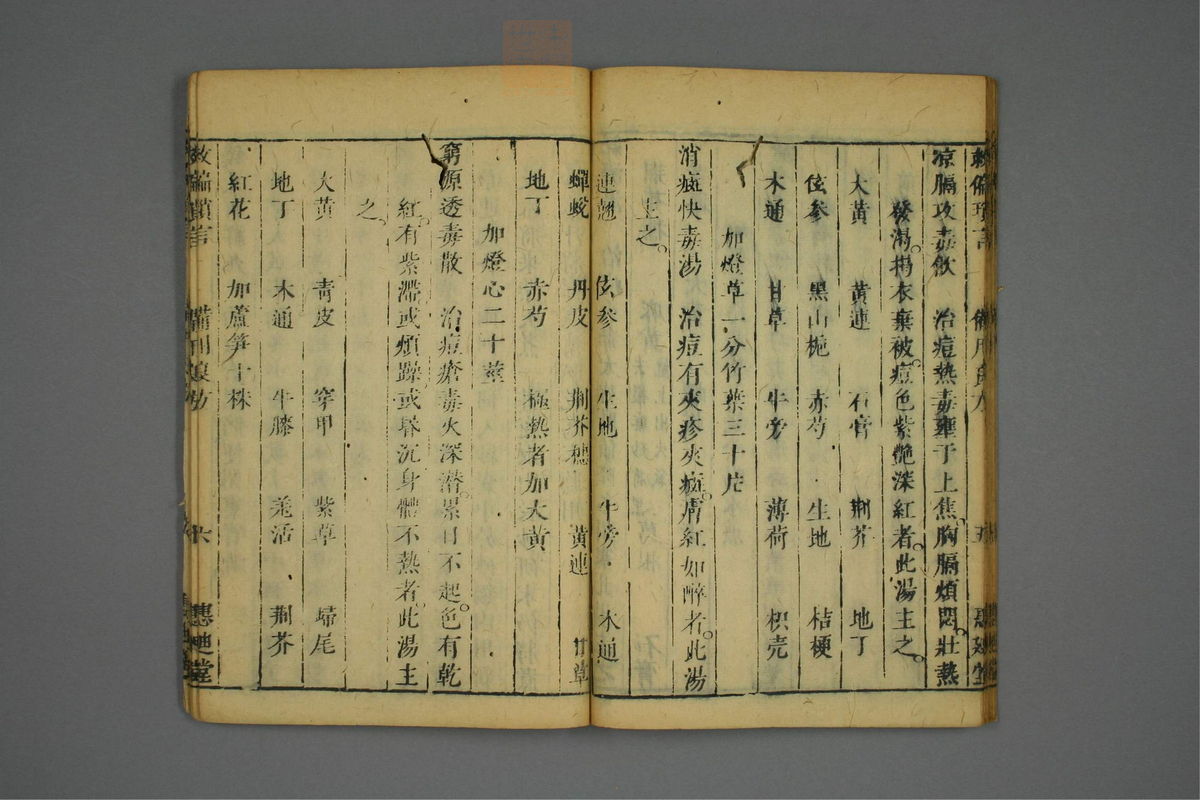 救偏瑣言 備用良方 五 惠迪堂
凉膈攻毒飲 治痘熱毒壅于上焦胸膈煩悶壯熱
發渴揭衣棄被痘色紫艷深紅者此湯主之
大黃 黃連 石膏 荆芥 地丁
玄參 黑山梔 赤芍 生地 桔梗
木通 甘草 牛旁 薄荷 枳壳
加燈草一分竹葉三十片
消癍快毒湯 治痘有夾疹夾癍膚紅如醉者此湯
主之
連翹 玄參 生地 牛旁 木通
蟬蛻 丹皮 荆芥穗 黃連 甘草
地丁 赤芍 極熱者加大黃
加燈心二十莖
窮源透毒散 治痘瘡毒火深潛累日不起色有乾
紅有紫滯或煩躁或昏沉身體不熱者此湯主
之
大黃 青皮 穿甲 紫草 歸尾
地丁 木通 牛膝 羗活 荆芥
紅花 加蘆笋十株
救偏瑣言 備用良方 六 惠迪堂